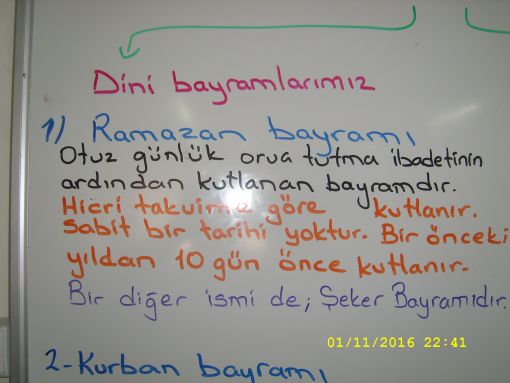 Dini bayramlarımız
1) Ramazan bayramı
Otuz günlük orua tutma ibadetinin
ardından kutlanan bayramdır.
Hicri takvime göre kutlanır.
Sabit bir tarihi yoktur. Bir önceki
yıldan 10 gün önce kutlanır.
Bir diğer ismi de; Şeker Bayramıdır.
01/11/2016 22:41
2-Kurban bayramı